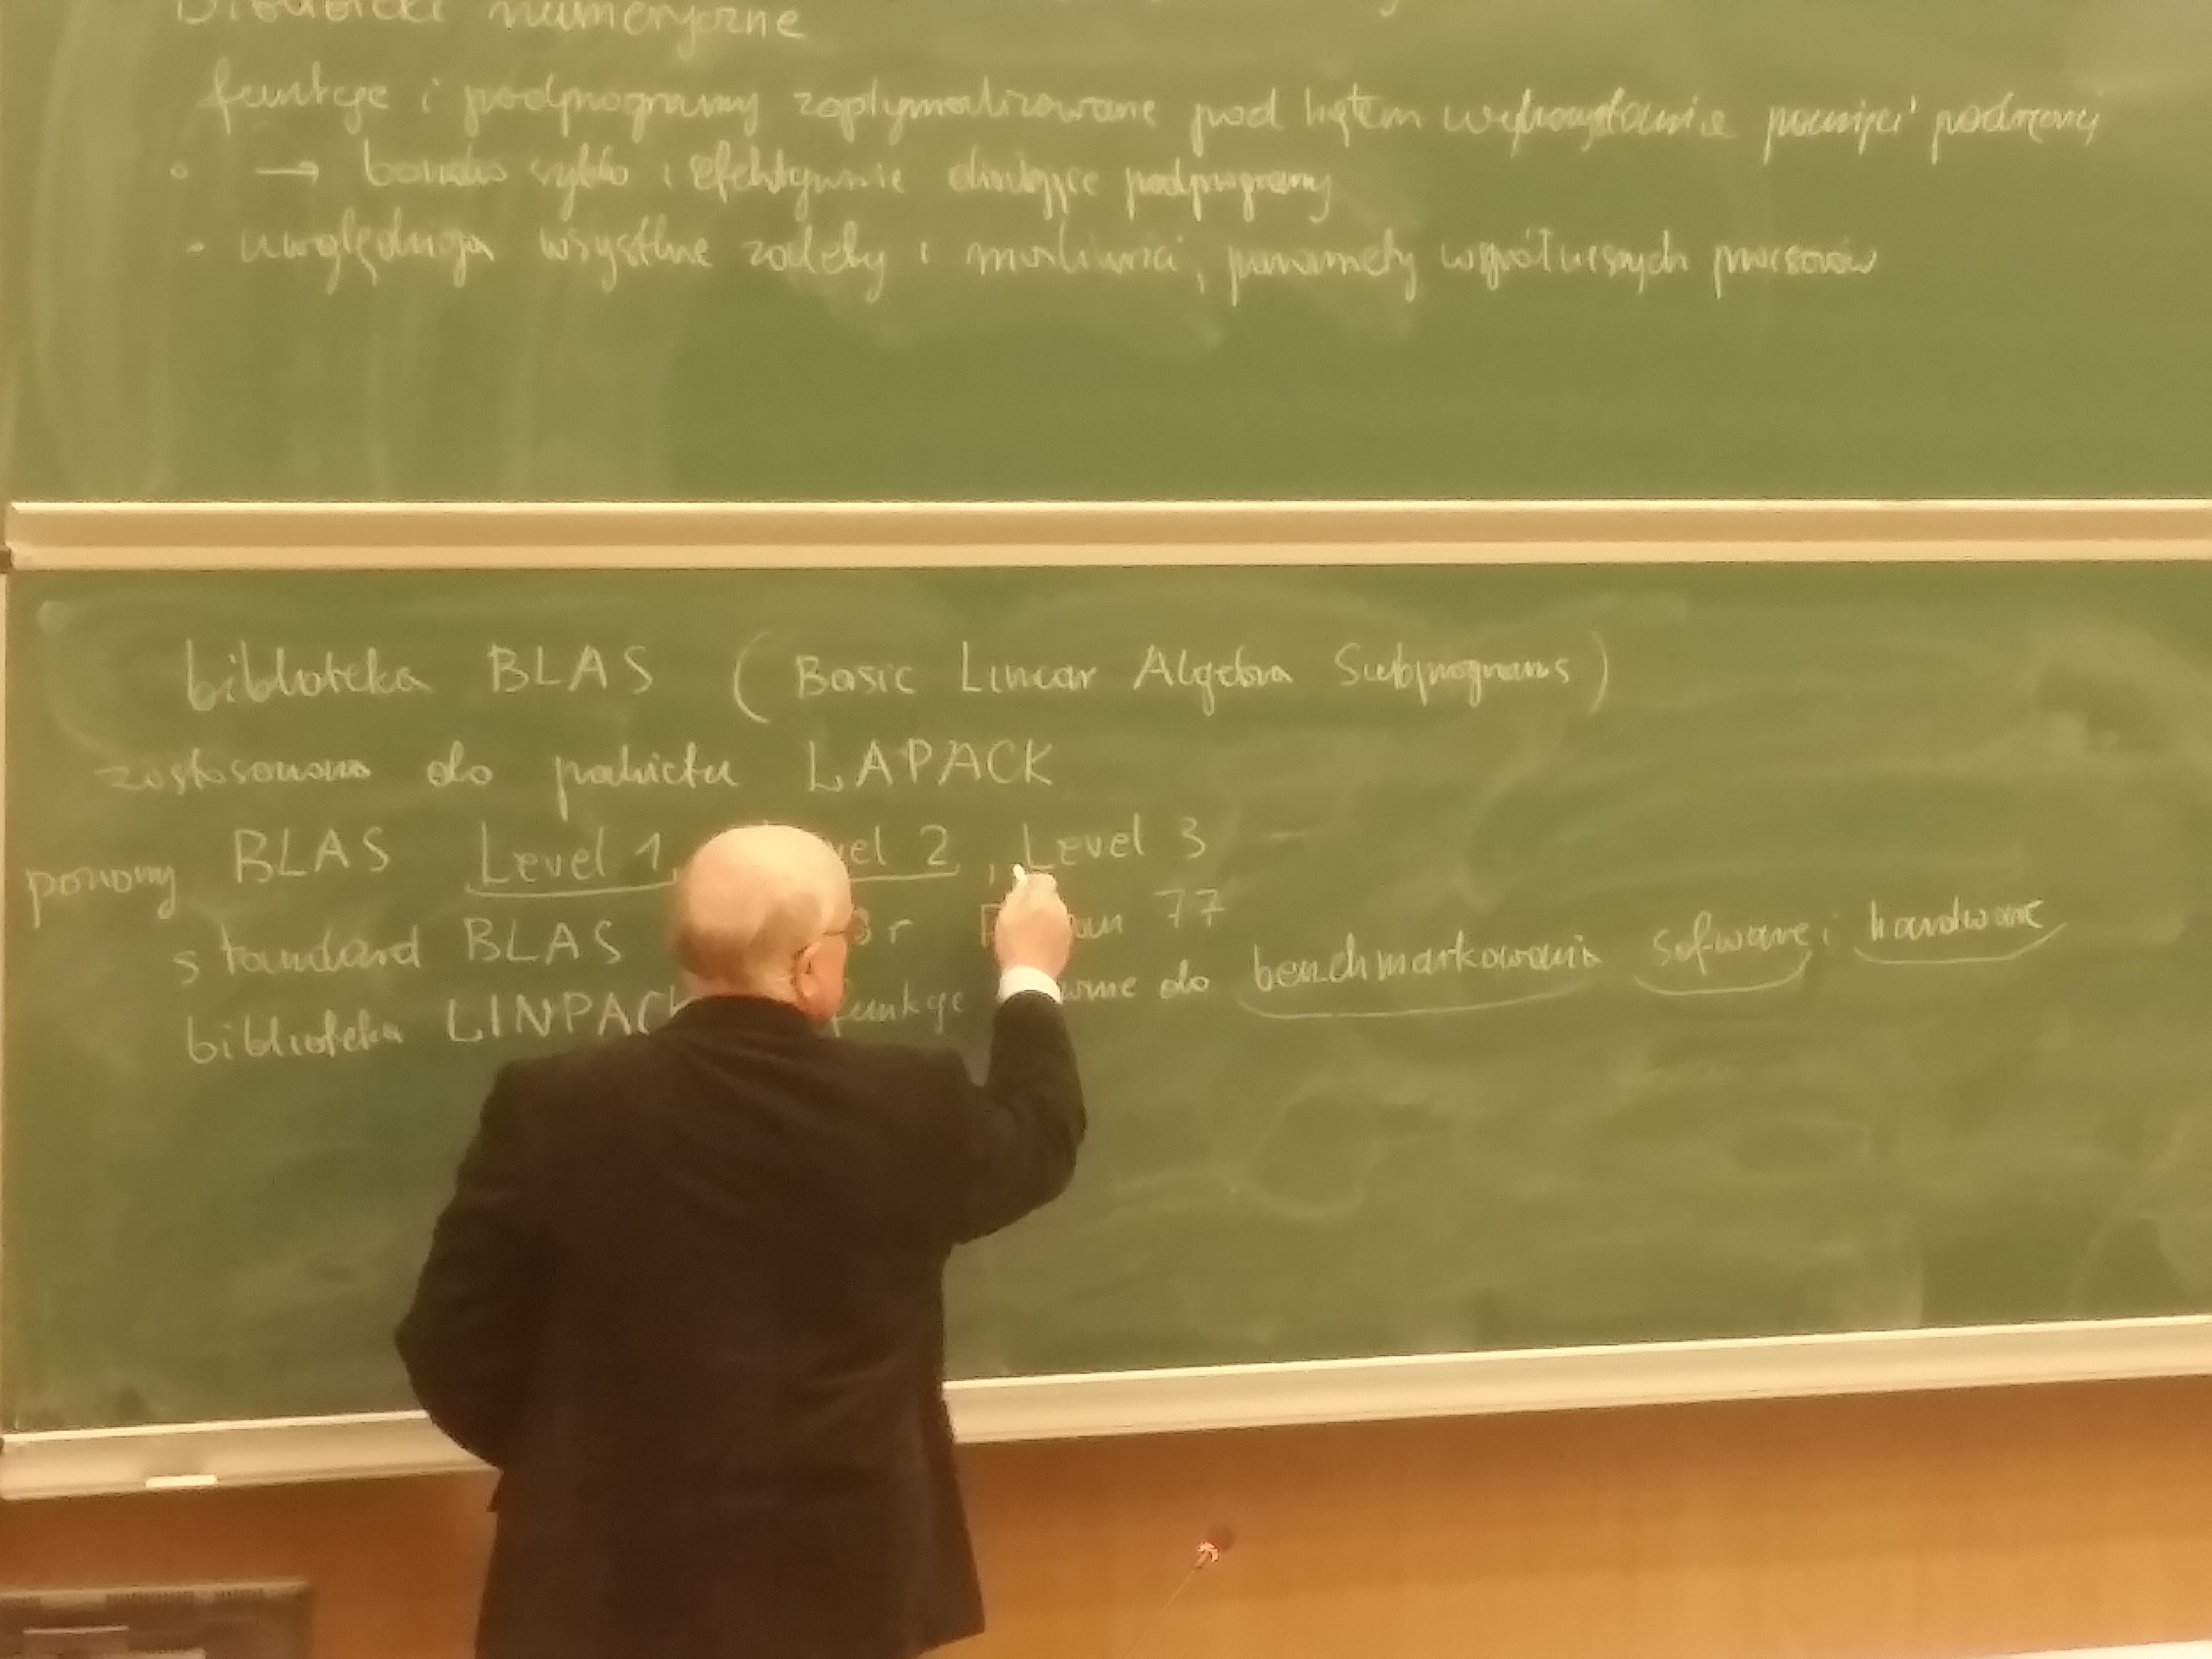 numeryczne
funkcje i podprogramy zoptymalizowane pod kątem wykorzystania pamięci podręcznej
• → bardzo szybko i efektywnie działające podprogramy
• uwzględniają wszystkie zalety i możliwości, parametry współczesnych procesorów
biblioteka BLAS (Basic Linear Algebra Subprograms)
zastosowano do pakietu LAPACK
poziomy BLAS Level 1, vel 2, Level 3 –
standard BLAS 77
biblioteka LINPACK funkcje do benchmarkowania sofware i hardware